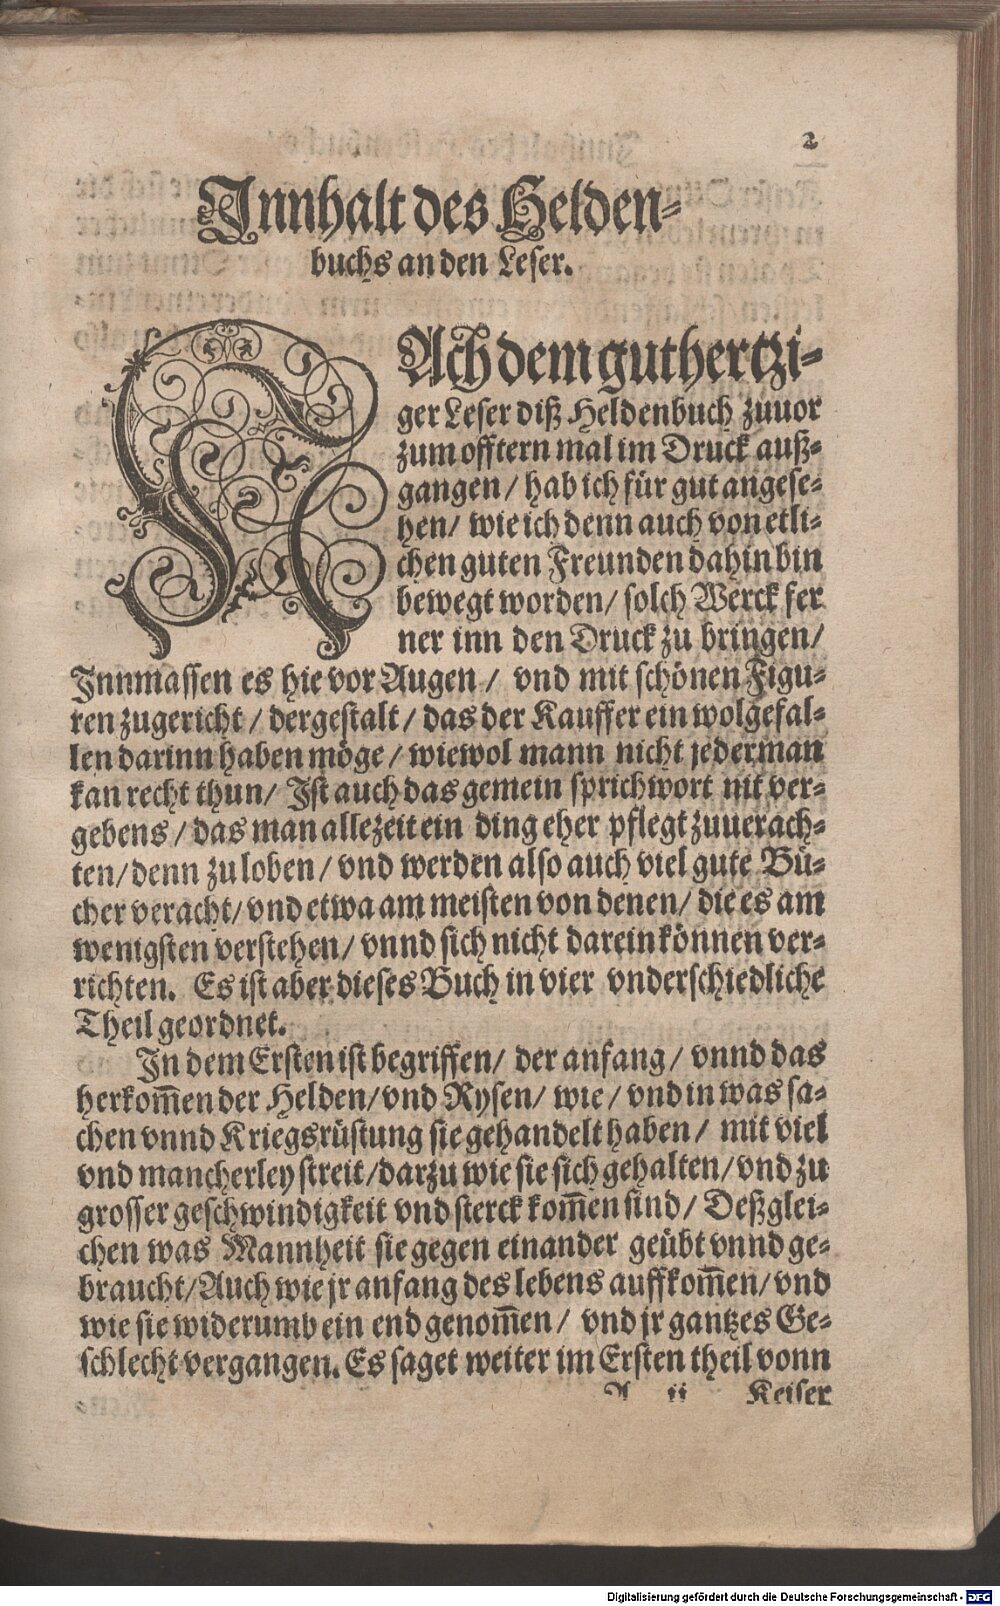 2
Innhalt des Helden-
buchs an den Leser.
NAch dem guthertzi-
ger Leser diß Heldenbuch zuuor
zum offtern mal im Druck auß-
gangen / hab ich für gut angese-
hen / wie ich denn auch von etli-
chen guten Freunden dahin bin
bewegt worden / solch Werck fer
ner inn den Druck zu bringen /
Innmassen es hie vor Augen / vnd mit schönen Figu-
ren zugericht / dergestalt / das der Kauffer ein wolgefal-
len darinn haben möge / wiewol mann nicht jederman
kan recht thun / Ist auch das gemein sprichwort nit ver-
gebens / das man allezeit ein ding eher pflegt zuuerach-
ten / denn zu loben / vnd werden also auch viel gute Bü-
cher veracht / vnd etwa am meisten von denen / die es am
wenigsten verstehen / vnnd sich nicht darein können ver-
richten. Es ist aber dieses Buch in vier vnderschiedliche
Theil geordnet.
In dem Ersten ist begriffen / der anfang / vnnd das
herkom̄en der Helden / vnd Rysen / wie / vnd in was sa-
chen vnnd Kriegsrüstung sie gehandelt haben / mit viel
vnd mancherley streit / darzu wie sie sich gehalten / vnd zu
grosser geschwindigkeit vnd sterck kom̄en sind / Deßglei-
chen was Mannheit sie gegen einander geübt vnnd ge-
braucht / Auch wie jr anfang des lebens auffkom̄en / vnd
wie sie widerumb ein end genom̄en / vnd jr gantzes Ge-
schlecht vergangen. Es saget weiter im Ersten theil vonn
A ii Keiser
Digitalisierung gefördert durch die Deutsche Forschungsgemeinschaft - DFG